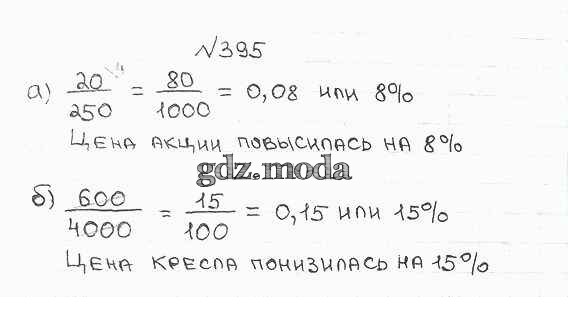 №395
а) 20/250 \4 = 80/1000 = 0,08 или 8%
Цена акции повысилась на 8%
gdz.moda
б) 600/4000 = 15/100 = 0,15 или 15%
Цена кресла понизилась на 15%